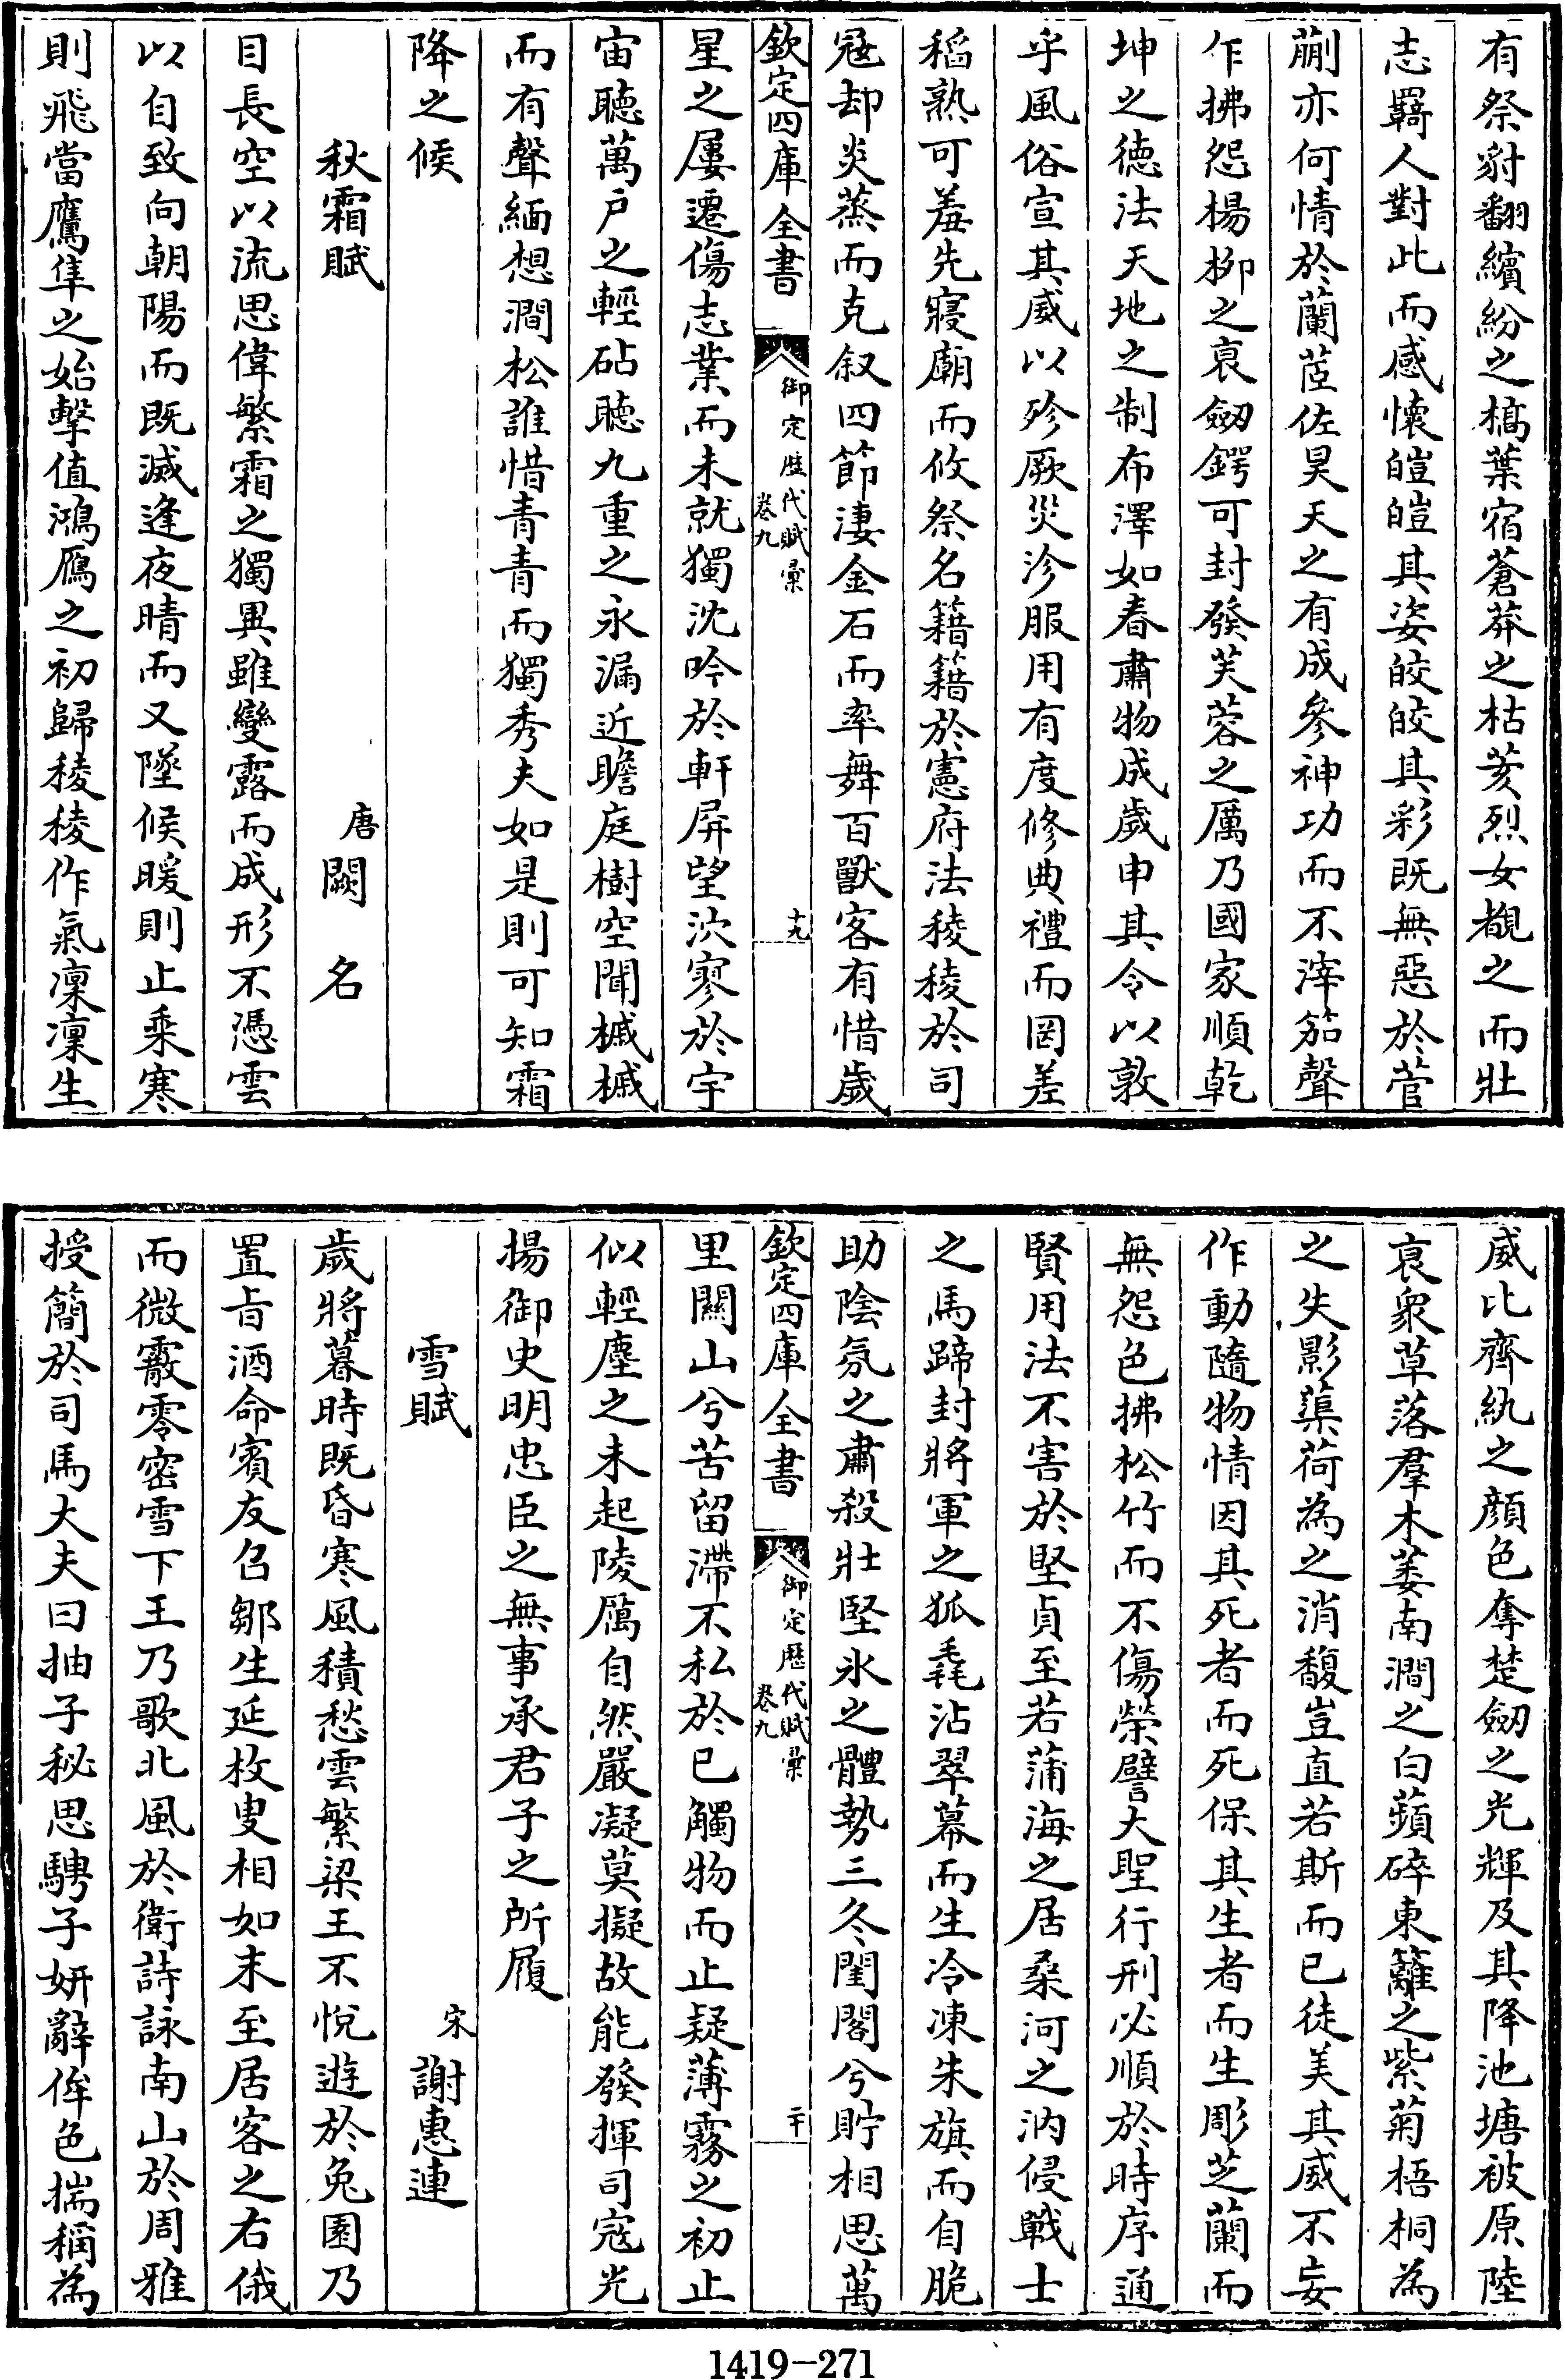 有祭豺翻繽紛之槁葉宿蒼莽之枯荄烈女覩之而壯
志羇人對此而感懷皚皚其姿皎皎其彩既無惡於菅
蒯亦何情於蘭茝佐昊天之有成參神功而不滓笳聲
乍拂怨楊柳之哀劒鍔可封發芙蓉之厲乃國家順乾
坤之徳法天地之制布澤如春肅物成歲申其令以敦
乎風俗宣其威以殄厥災沴服用有度修典禮而罔差
稻熟可羞先寢廟而攸祭名籍籍於憲府法稜稜於司
冦却炎蒸而克叙四節淒金石而率舞百獸客有惜歲
欽定四庫全書
御定歴代賦彚
卷九
十九
星之屢遷傷志業而未就獨沈吟於軒屏望泬寥於宇
宙聽萬户之輕砧聽九重之永漏近瞻庭樹空聞槭槭
而有聲緬想澗松誰惜青青而獨秀夫如是則可知霜
降之候
秋霜賦
唐 闕名
目長空以流思偉繁霜之獨異雖變露而成形不憑雲
以自致向朝陽而既滅逢夜晴而又墜候暖則止乘寒
則飛當鷹隼之始擊值鴻鴈之初歸稜稜作氣凜凜生
威比齊紈之顔色奪楚劒之光輝及其降池塘被原陸
哀衆草落羣木萎南澗之白蘋碎東籬之紫菊梧桐為
之失影蕖荷為之消馥豈直若斯而已徒美其威不妄
作動隨物情因其死者而死保其生者而生彫芝蘭而
無怨色拂松竹而不傷榮譬大聖行刑必順於時序通
賢用法不害於堅貞至若蒲海之居桑河之汭侵戰士
之馬蹄封將軍之狐毳沾翠幕而生冷凍朱旗而自脆
助陰氛之肅殺壯堅氷之體勢三冬閨閤兮貯相思萬
欽定四庫全書
御定歴代賦彚
卷九
二十
里關山兮苦留滯不私於已觸物而止疑薄霧之初止
似輕塵之未起陵厲自然嚴凝莫擬故能發揮司寇光
揚御史明忠臣之無事承君子之所履
雪賦
宋 謝惠連
歲將暮時既昏寒風積愁雲繁梁王不悅遊於兔園乃
置㫖酒命賓友召鄒生延枚叟相如末至居客之右俄
而微霰零密雪下王乃歌北風於衛詩詠南山於周雅
授簡於司馬大夫曰抽子秘思騁子妍辭侔色揣稱為
1419-271